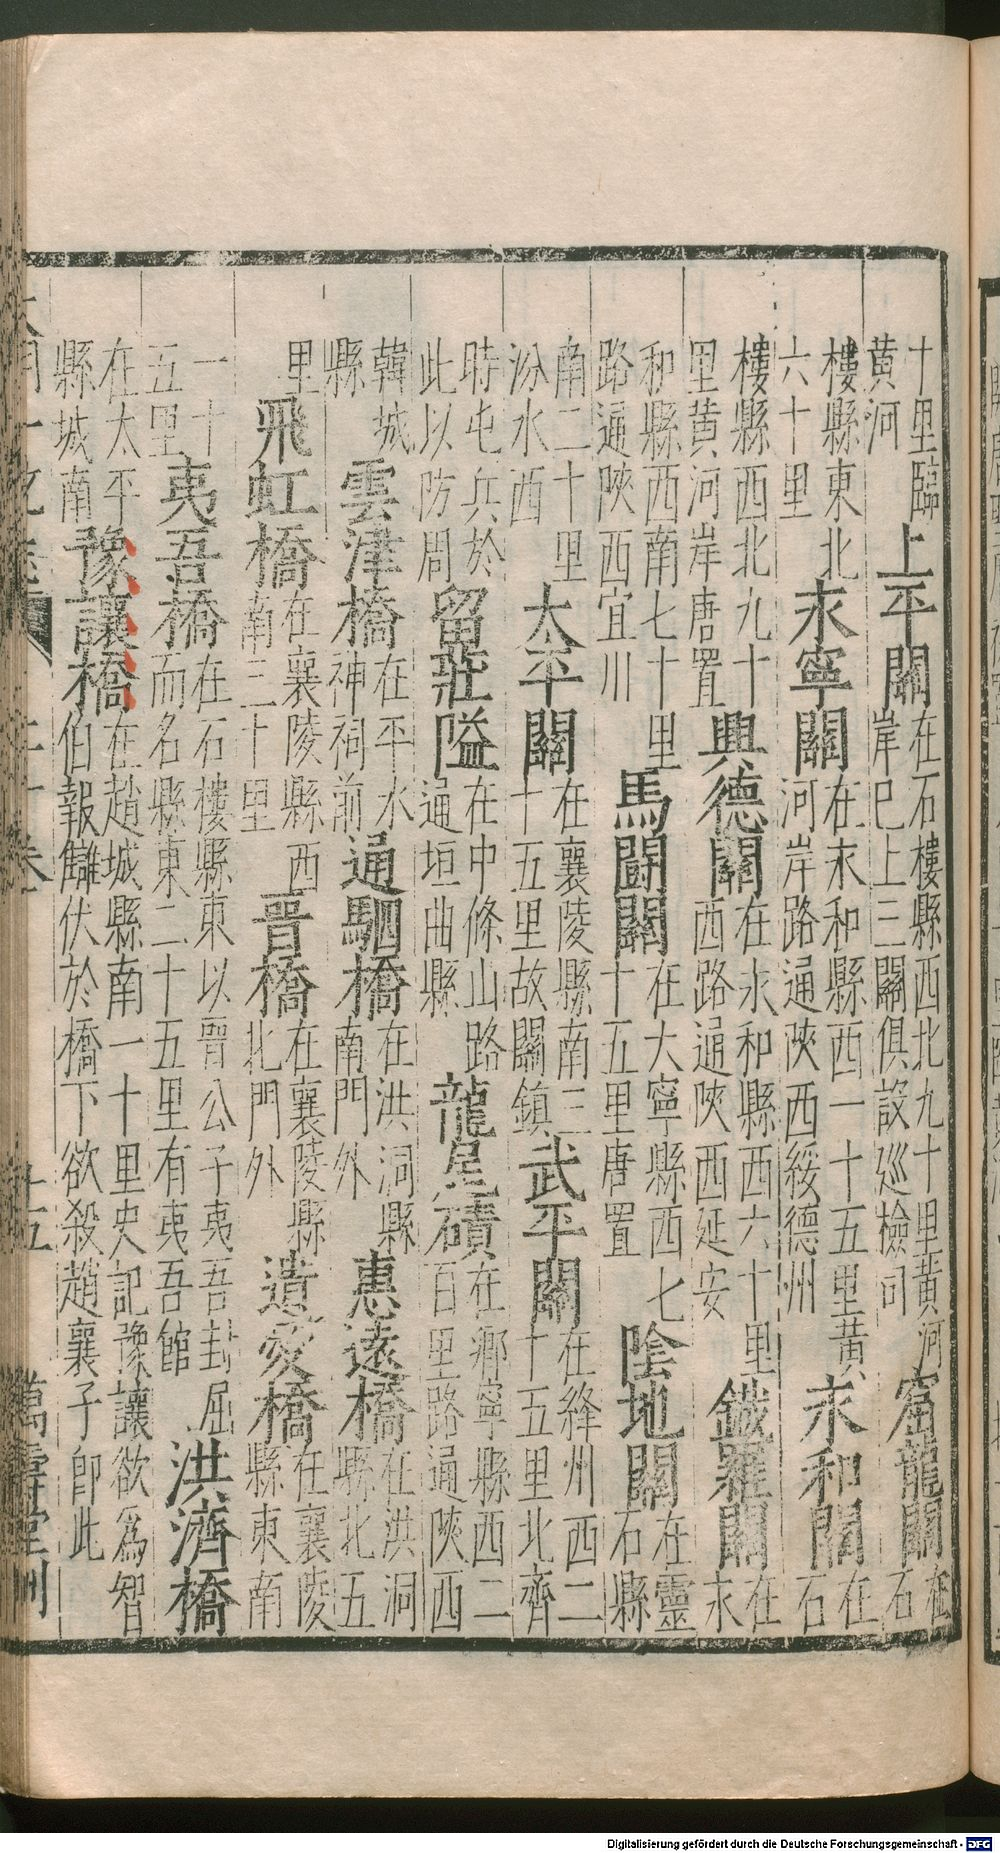 十里臨黃河上平關在石樓縣西北九十里黃河岸巳上三關俱設巡檢司窟龍關在石
樓縣東北六十里永寧關在永和縣西一十五里黃河岸路通陝西綏德州永和關在石
樓縣西北九十里黃河岸唐置興德關在永和縣西六十里西路通陝西延安鐵羅關在永
和縣西南七十里路通陝西宜川馬鬬關在大寧縣西七十五里唐置陰地關在靈石縣
南二十里汾水西太平關在襄陵縣南三十五里故關鎮武平關在絳州西二十五里北齊
時屯兵於此以防周留莊隘在中條山路通垣曲縣龍尾磧在鄉寧縣西二百里路通陝西
韓城縣雲津橋在平水神祠前通駟橋在洪洞縣南門外惠遠橋在洪洞縣北五
里飛虹橋在襄陵縣西南三十里晉橋在襄陵縣北門外遺愛橋在襄陵縣東南
一十五里夷吾橋在石樓縣東以晉公子夷吾封屈而名縣東二十五里有夷吾館洪濟橋
在太平縣城南豫讓橋在趙城縣南一十里史記豫讓欲為智伯報讎伏於橋下欲殺趙襄子即此
十五 萬壽堂刊
Digitalisierung gefördert durch die Deutsche Forschungsgemeinschaft - DFG